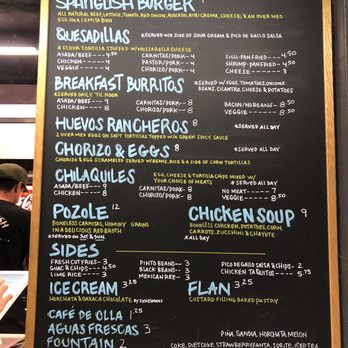 SPANGLISH BURGER
ALL NATURAL BEEF, LETTUCE, TOMATO, RED ONION, AVOCADO, AIOLI/CREMA, CHEESE, & AN OVER MED
EGG ON A CEMITA BUN
QUESADILLAS *SERVED W/ SIDE OF SOUR CREAM & PICO DE GALLO SALSA
A FLOUR TORTILLA STUFFED W/ MOZZARELLA CHEESE
ASADA/BEEF --- 4.50 CARNITAS/PORK - 4 FISH-PAN FRIED --- 4.50
CHICKEN --- 4 PASTOR/PORK - 4 SHRIMP-PAN FRIED - 4.50
VEGGIE - 3.50 CHORIZO/PORK - 4 CHEESE --- 3
BREAKFAST BURRITOS *SERVED W/ EGGS, TOMATOES, ONIONS
*SERVED DAILY 'TIL NOON BEANS, CILANTRO, CHEESE & POTATOES
ASADA/BEEF --- 9 CARNITAS/PORK - 8 BACON/NO BEANS - 8.50
CHICKEN --- 8 CHORIZO/PORK - 8 VEGGIE --- 8.50
HUEVOS RANCHEROS 8 *SERVED ALL DAY
2 OVER MED EGGS ON SOFT TORTILLAS TOPPED W/ A GREEN SPICY SAUCE
CHORIZO & EGGS 8 *SERVED ALL DAY
CHORIZO & EGG SCRAMBLED SERVED W/ BEANS, RICE & A SIDE OF CORN TORTILLAS
CHILAQUILES EGG, CHEESE & TORTILLA CHIPS MIXED W/ *SERVED ALL DAY
YOUR CHOICE OF MEATS
ASADA/BEEF --- 9 CARNITAS/PORK - 8 NO MEAT - 7
CHICKEN --- 8 CHORIZO/PORK - 8 VEGGIE - 8.50
POZOLE 12 CHICKEN SOUP 9
BONELESS CARNITAS, HOMINY GRAINS BONELESS CHICKEN, POTATOES, CORN,
IN A DELICIOUS RED BROTH CARROTS, ZUCCHINI & CHAYOTE
*SERVED ON SAT & SUN *ALL DAY
SIDES
FRESH CUT FRIES - 3 PINTO BEANS - 3 PICO DE GALLO SALSA & CHIPS - 2
GUAC & CHIPS - 4.50 BLACK BEANS - 3 CHICKEN TAQUITOS - 5.75
LIME RICE --- 3 MEXICAN RICE - 3
ICE CREAM 3.25 FLAN 3.25
HORCHATA & OAXACA CHOCOLATE CUSTARD FILLING BAKED PASTRY
CAFÉ DE OLLA 1.25
AGUAS FRESCAS 3 PIÑA, SANDIA, HORCHATA, MELON
FOUNTAIN 2 COKE, DIET COKE, STRAWBERRY FANTA, SPRITE, ICED TEA